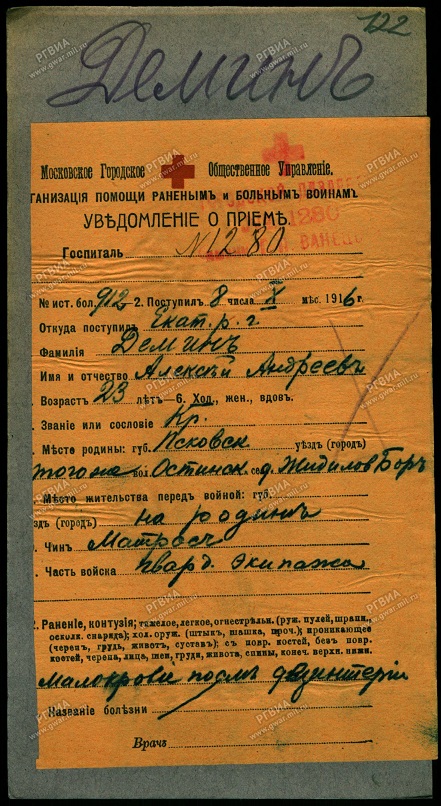 122
Деминъ
Московское Городское Общественное Управленіе.
ГАНИЗАЦІЯ ПОМОЩИ РАНЕНЫМЪ и БОЛЬНЫМЪ ВОИНАМЪ
УВѢДОМЛЕНІЕ О ПРІЕМѢ.
1280
Госпиталь №1280
№ ист. бол. 912 — 2. Поступилъ 8 числа X мѣс. 1916 г.
Откуда поступилъ Екат. р. г.
Фамилія Деминъ
Имя и отчество Алексѣй Андреевъ
. Возрастъ 23 лѣтъ — 6. Хол., жен., вдов.
. Званіе или сословіе Кр.
. Мѣсто родины: губ. Псковск уѣздъ (городъ)
того же вол. Остинск. с. д. Жидиловъ Боръ
. Мѣсто жительства передъ войной: губ.
здъ (городъ) на родинѣ
. Чинъ Матросъ
. Часть войска Гвард. экипажа
2. Раненіе, контузія; тяжелое, легкое, огнестрѣльн. (руж. пулей, шрапн.,
осколк. снаряда); хол. оруж. (штыкъ, шашка, проч.); проникающее
(черепъ, грудь, животъ, суставъ); съ повр. костей, безъ повр.
костей, черепа, лица, шеи, груди, живота, спины, конеч. верхн. нижн.
Малокрови послѣ дезинтеріи
Названіе болѣзни
Врачъ
РГВИА
www.gwar.mil.ru